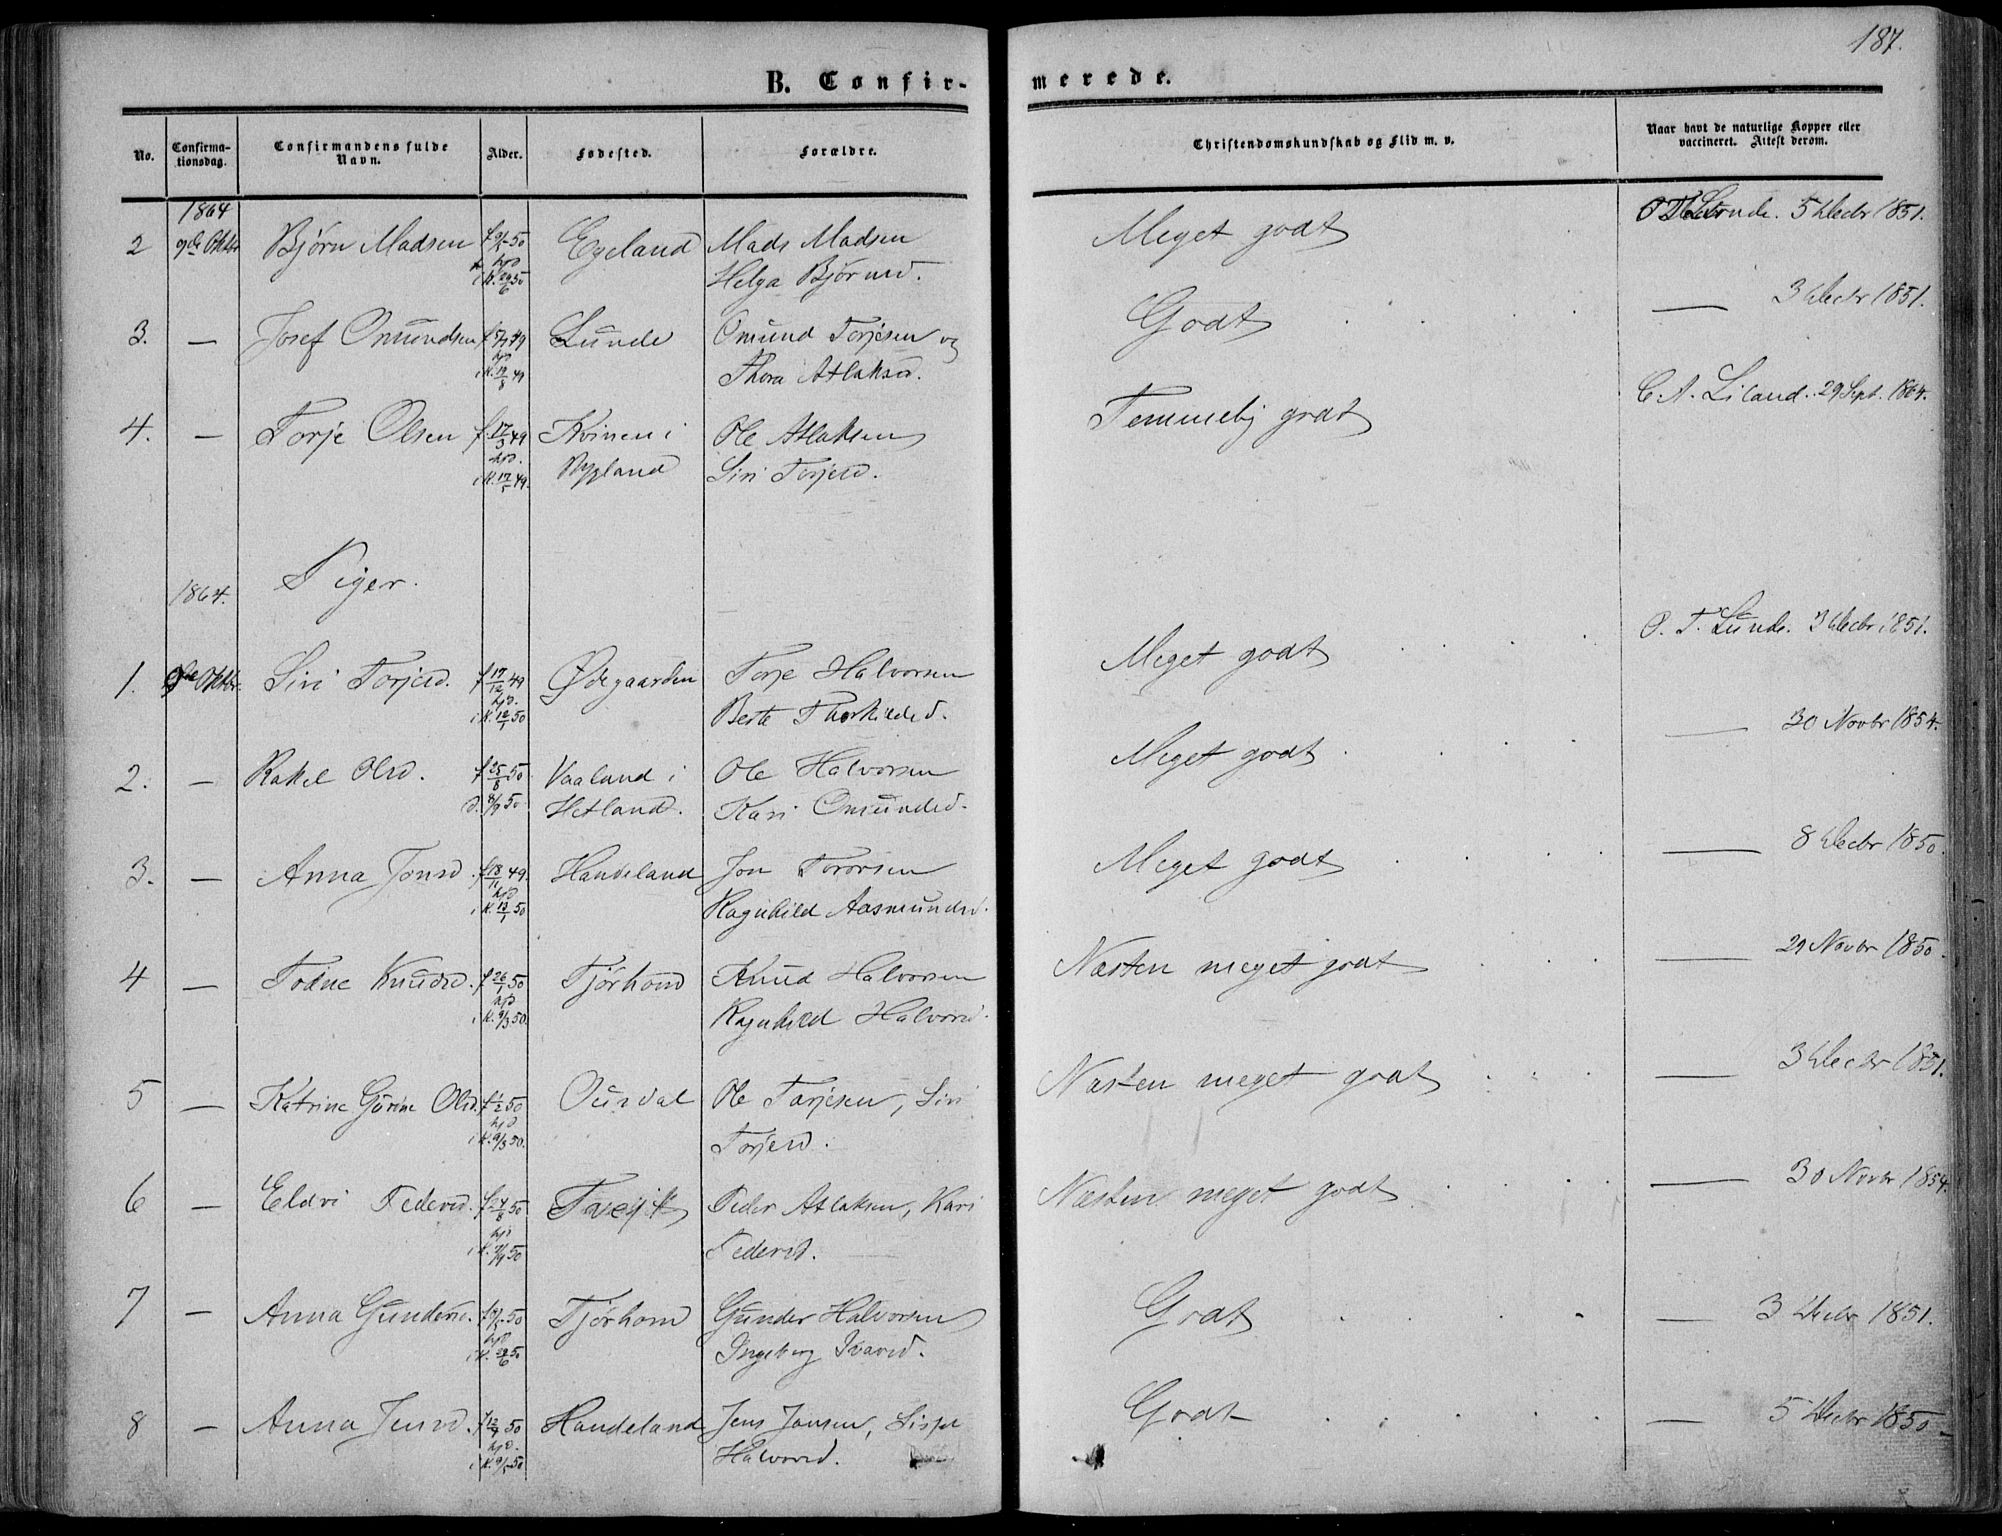 187.
B. Confir-
merede.
No.
Confirma-
tionsdag.
Confirmandens fulde
Navn.
Alder.
Fødested.
Forældre.
Christendomskundskab og Flid m. v.
Naar havt de naturlige Kopper eller
vaccineret. Attest derom.
1864
2 9de Oktbr Bjørn Madsen Egeland Mads Madsen Meget godt 5 Decbr 1851.
hjd Helga Bjørnsd.
i K. 29/6 50
3. — Josef Omundsen Lunde Omund Torjesen og Godt — 3 Decbr 1851.
hjd Thora Atlaksd.
i K. 19/8 49
4. — Torje Olsen f. 17/3 49 Kvinen i Ole Atlaksen Temmelig godt C. A. Liland. 29 Sept. 1864.
hjd. Rygland Siri Torjesd.
i K. 17/5 49.
Piger.
1864.
1. 9de Oktbr. Siri Torjesd. f 17/12 49 Ødegaarden Torje Halvorsen Meget godt O. T. Lunde. 3 Decbr 1851.
hjd. Berte Thorkildsd.
i K. 12/1 50
2. — Rakel Olsd. f 25/8 50 Vaaland i Ole Halvorsen Meget godt — 30 Novbr 1854.
d. 8/9 50 Hetland. Kari Omundsd.
3. — Anna Jonsd. f 18/11 49. Handeland Jon Tororsen Meget godt — 8 Decbr 1850.
hjd Ragnhild Aasmundsd.
i K. 13/1 50
4 — Todne Knudsd. f 26/1 50 Tjørhom Knud Halvorsen Næsten meget godt — 29 Novbr 1850.
hjd Ragnhild Halvorsd.
i K. 9/3 50.
5 — Katrine Gurine Olsd. f 1/2 50 Ousdal Ole Torjesen, Siri Næsten meget godt — 3 Decbr 1851.
hjd Torjesd.
i K. 9/3 50.
6 — Eldri Pedersd. f 24/8 50 Peder Atlaksen, Kari Næsten meget godt — 30 Novbr 1854.
hjd Pedersd.
i K. 50
7 — Anna Gundersd. Tjørhom Gunder Halvorsen Godt — 3 Decbr 1851.
hjd Ingeborg Ivarsd.
i K. 29/6 50
8 — Anna Jensd. 50 Handeland Jens Jonsen, Sispe Godt — 5 Decbr 1850.
hjd. Halvorsd.
i K. 50